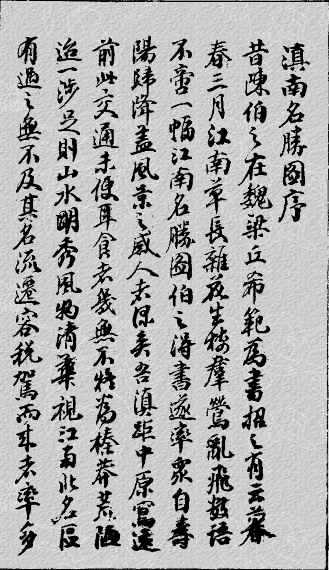 滇南名勝圖序
昔陳伯之在魏梁丘希範為書招之有云暮
春三月江南草長雜花生樹群鶯亂飛數語
不啻一幅江南名勝圖伯之得書遂率眾自壽
陽歸降蓋風景之感人者深矣吾滇距中原寫遠
前此交通未便耳食者幾無不將為榛莽荒陋
迨一涉足則山水明秀風物清華視江南北名區
有過之無不及其名流遷客稅駕而來者率多